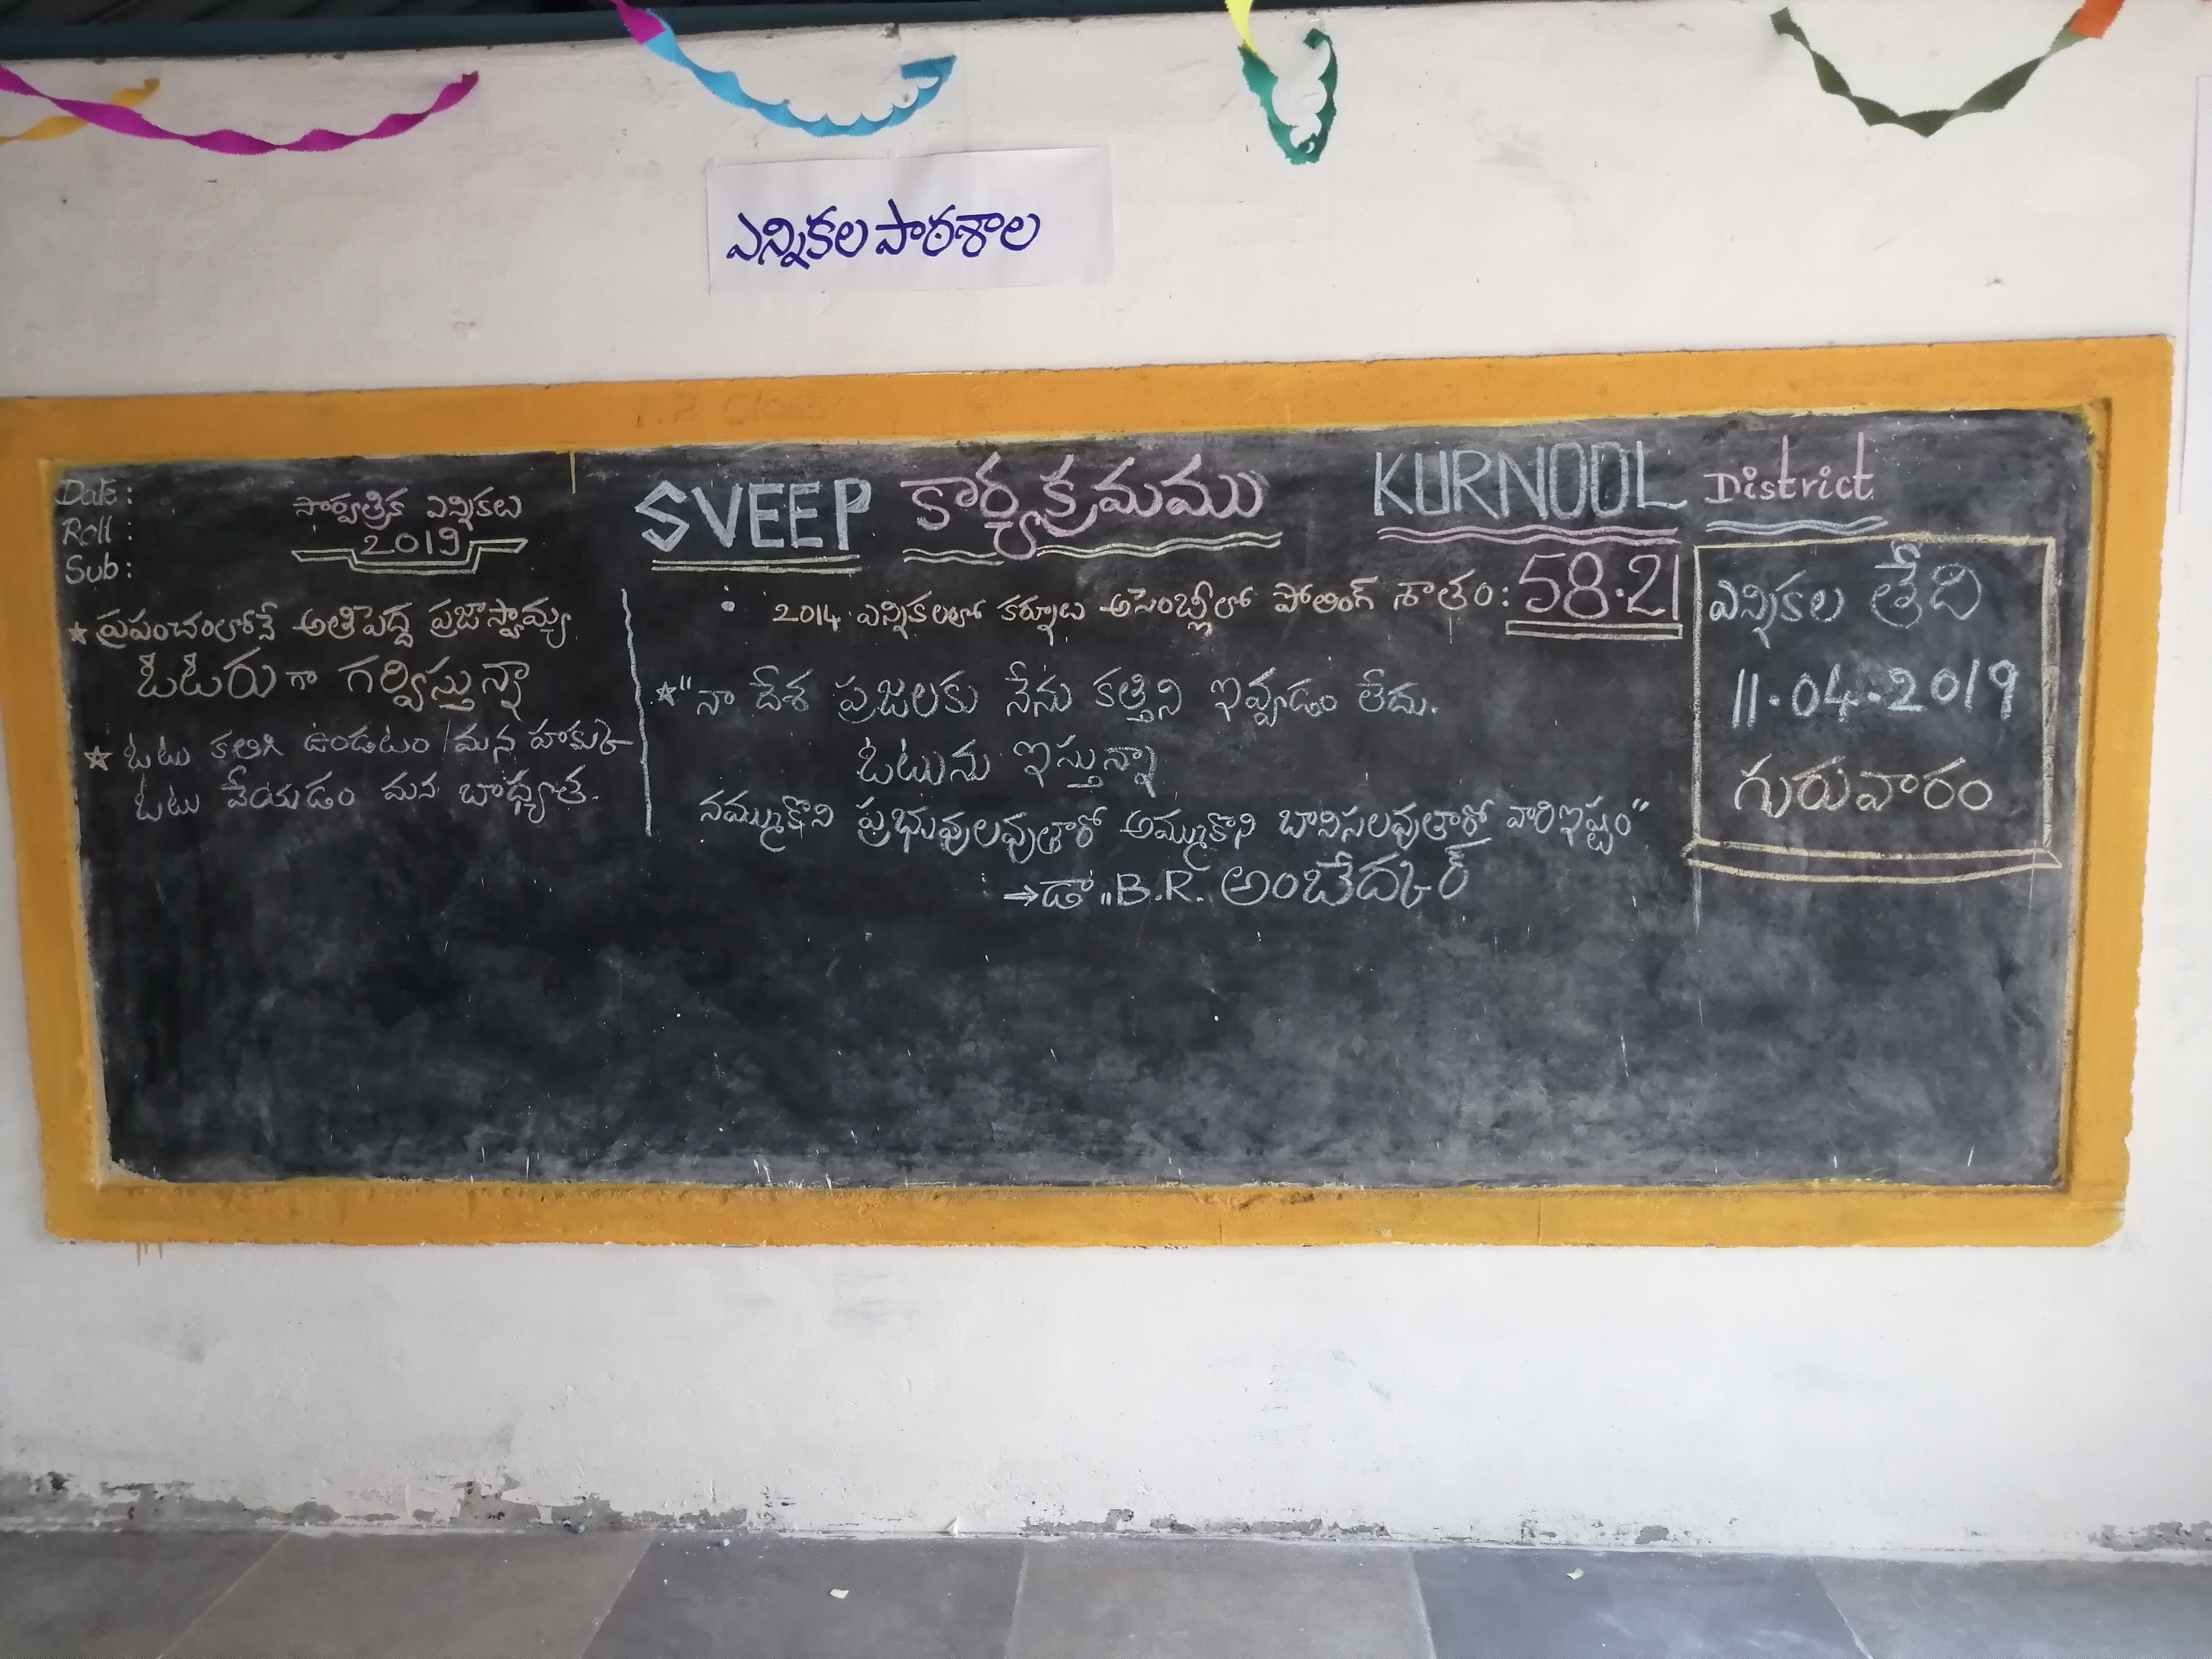 ఎన్నికల పాఠశాల
Date:
Roll:
Sub:
సార్వత్రిక ఎన్నికలు
2019
★ ప్రపంచంలోనే అతిపెద్ద ప్రజాస్వామ్య
ఓటరు గా గర్విస్తున్నా
★ ఓటు కలిగి ఉండటం మన హక్కు
ఓటు వేయడం మన బాధ్యత.
SVEEP కార్యక్రమము KURNOOL District
: 2014 ఎన్నికలలో కర్నూలు అసెంబ్లీలో పోలింగ్ శాతం: 58.21
★ "నా దేశ ప్రజలకు నేను కత్తిని ఇవ్వడం లేదు.
ఓటును ఇస్తున్నా
నమ్ముకొని ప్రభువులవుతారో అమ్ముకొని బానిసలవుతారో వారిఇష్టం"
→డా"B.R. అంబేద్కర్
ఎన్నికల తేది
11.04.2019
గురువారం